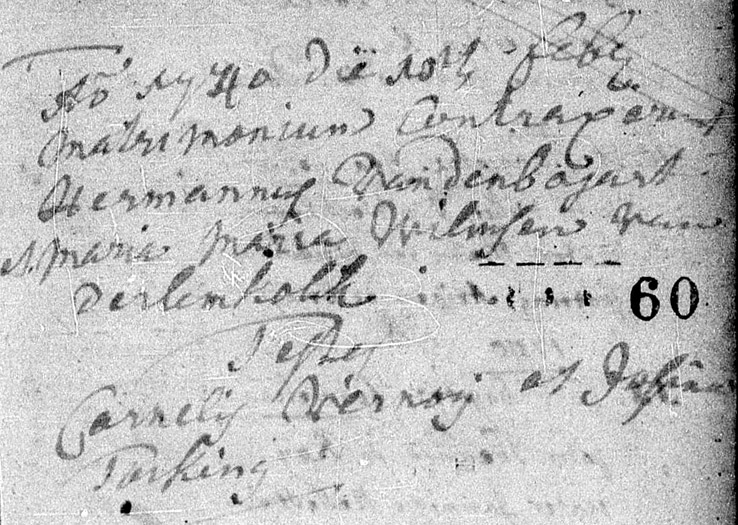 Aō 1740 Die 10th feby
Matrimonium Contraxerunt
Hermannus Vandenbogart
Maria Maria Wilmsen van
Derlinkolk
60
Testes
Cornelis et
Tarking